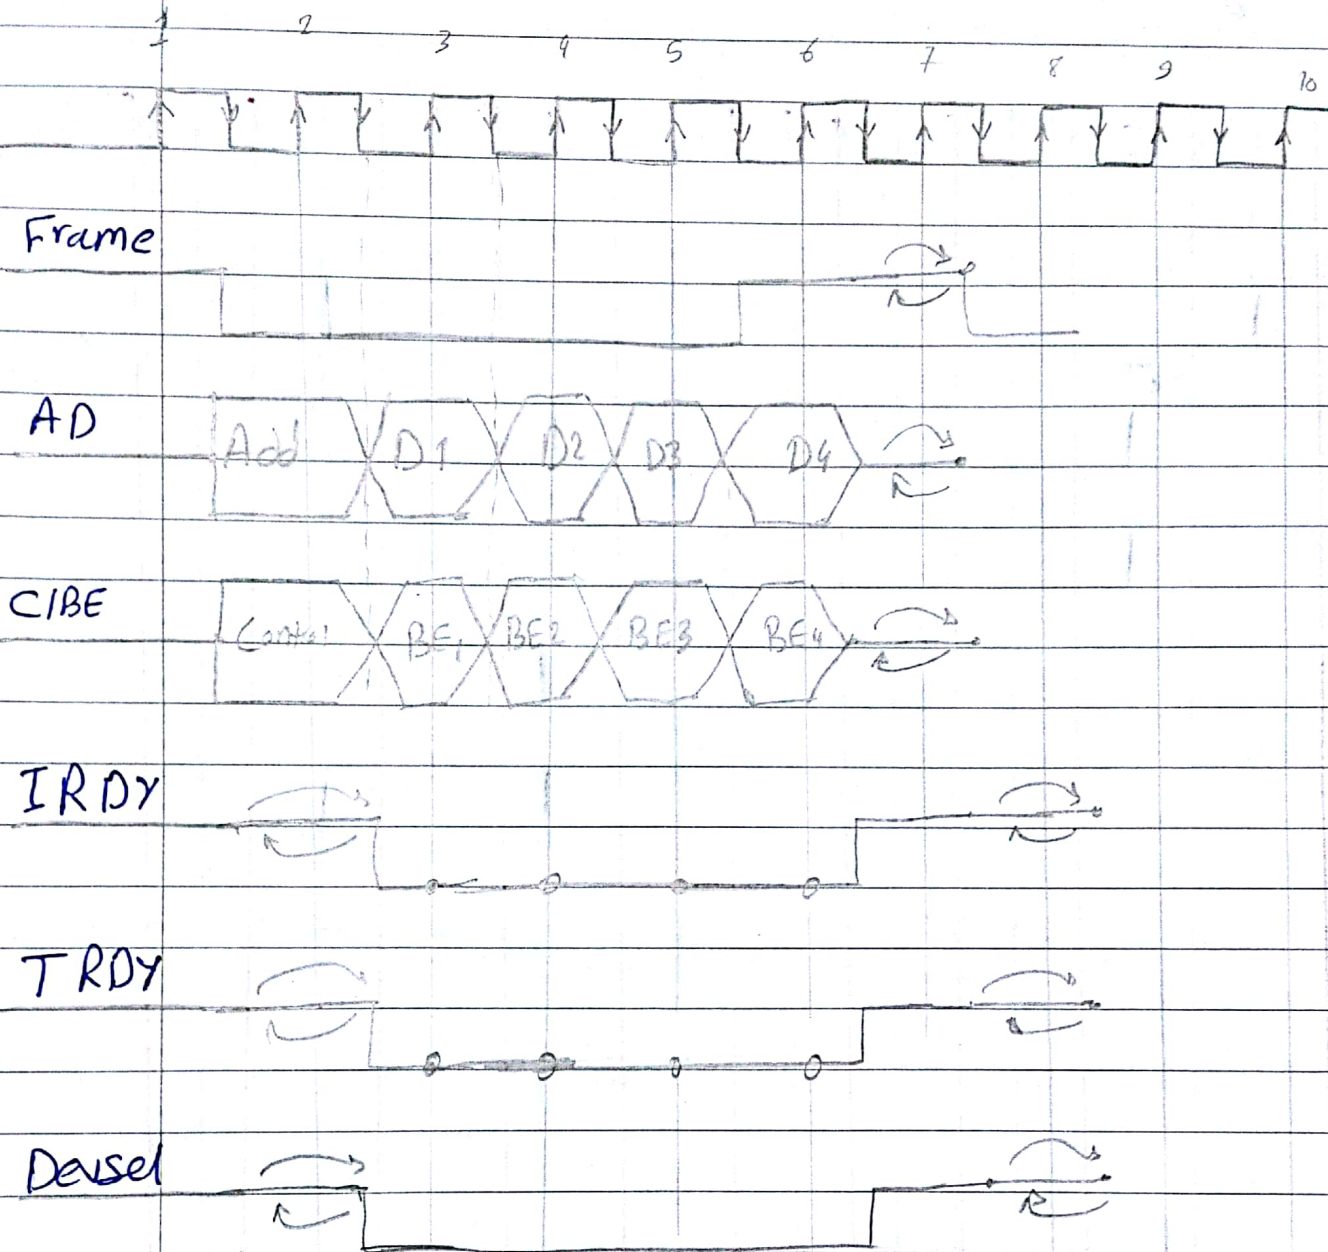 1 2 3 4 5 6 7 8 9 10
Frame
AD
Add D1 D2 D3 D4
C/BE
Control BE1 BE2 BE3 BE4
IRDY
TRDY
Devsel